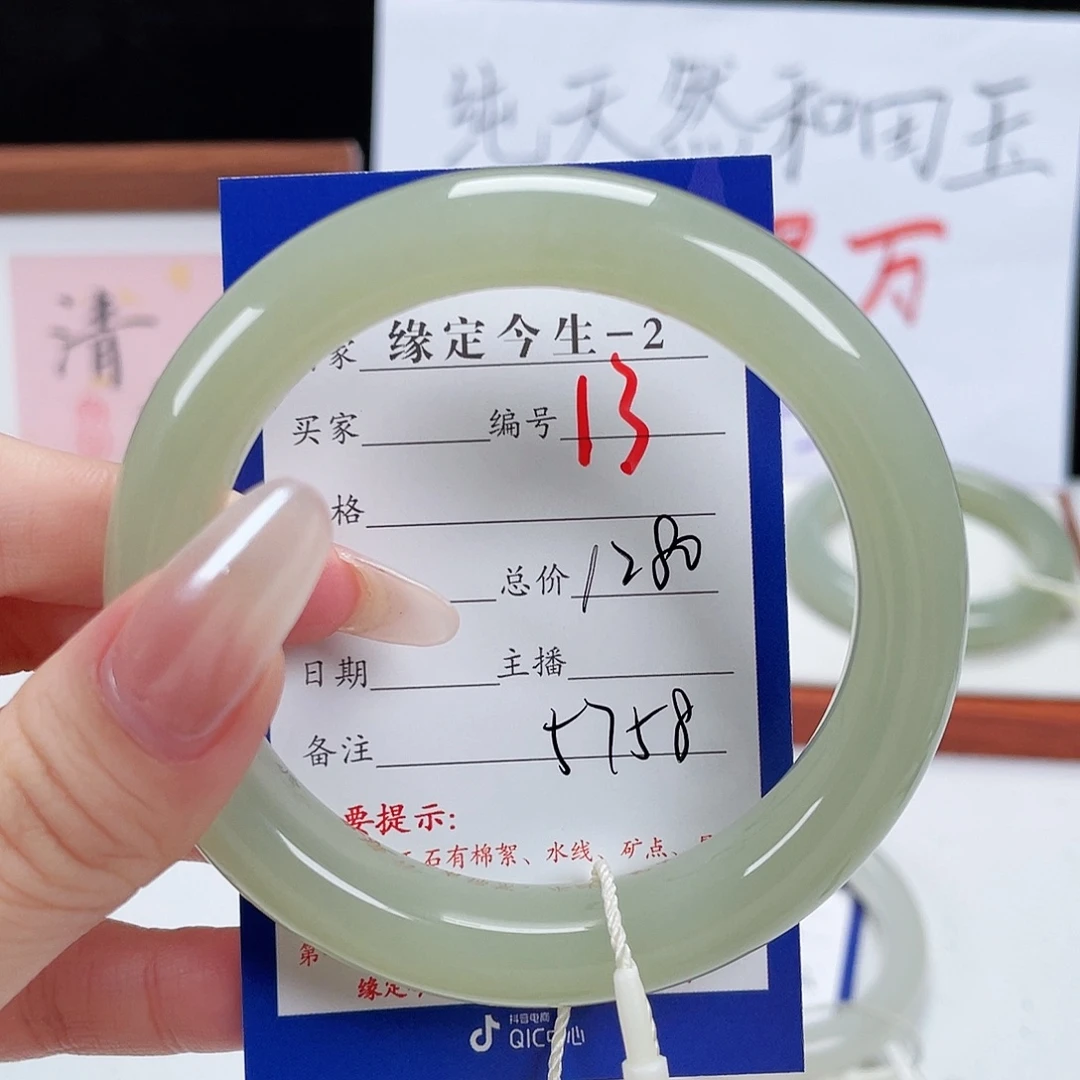 纯天然和田玉
万
清
家 缘定今生-2
买家 编号 13
格
总价 1280
日期 主播
备注 5758
要提示:
石有棉絮、水线、矿点、
第
缘定
抖音电商
QIC中心